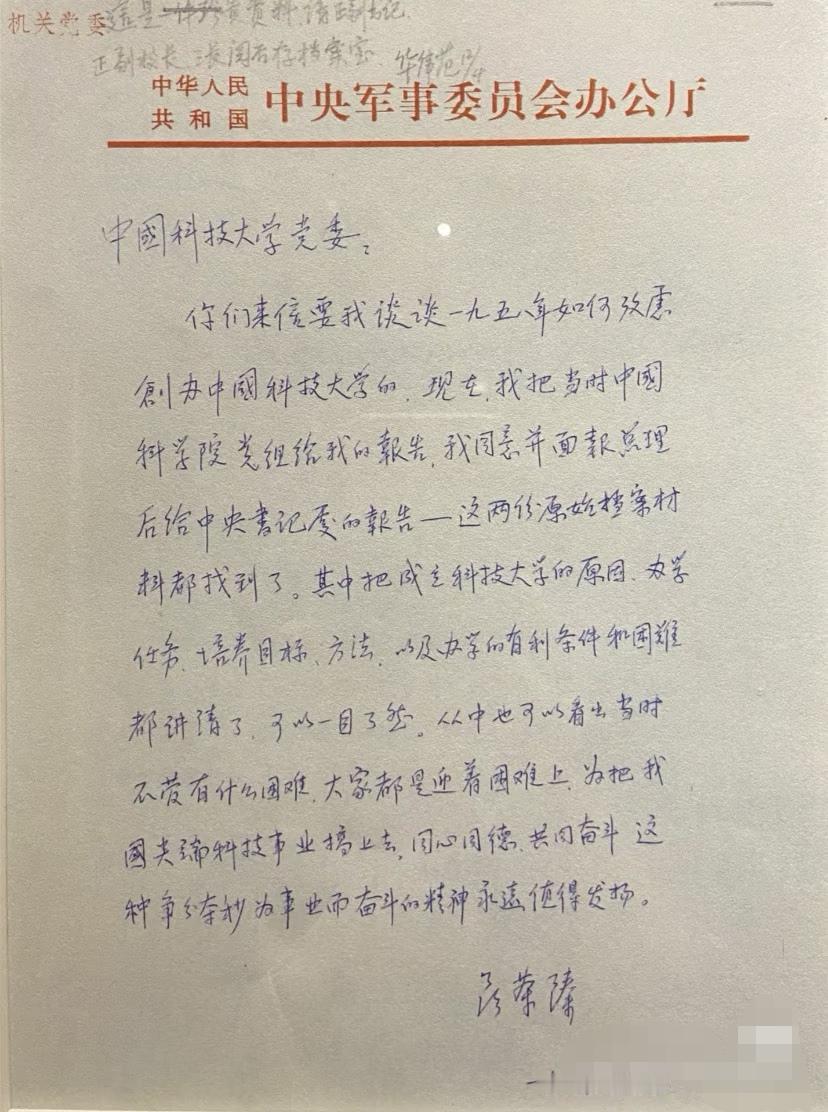 机关党委
这是一件珍贵资料，请正副书记、
正副校长、三长阅后存档案室。
中华人民
共和国
中央军事委员会办公厅
中國科技大学党委：
你们来信要我谈谈一九五八年如何攷虑
創办中國科技大学的。现在，我把当时中國
科学院党组给我的報告，我同意并面報总理
后给中央書记处的報告—这两份原始档案材
料都找到了。其中把成立科技大学的原因、办学
任务、培养目标、方法，以及办学的有利条件和困难
都讲清了，可以一目了然。从中也可以看出当时
不管有什么困难，大家都是迎着困难上，为把我
國尖端科技事业搞上去，同心同德、共同奋斗 这
种争分夺秒为事业而奋斗的精神永远值得发扬。
聂荣臻